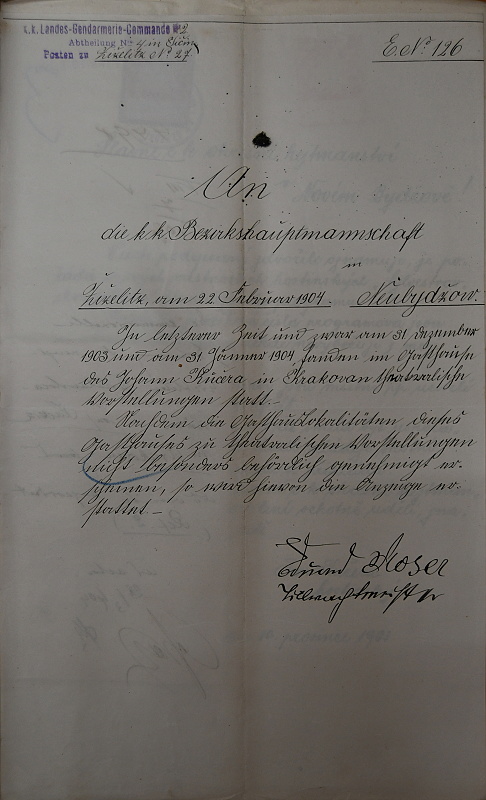 k.k. Landes-Gendarmerie-Commando № 2
Abtheilung Nr. 4 in Gičin
Posten zu Žiželitz No 27
E. No 126
An
die k.k. Bezirkshauptmannschaft
in
Žiželitz, am 22. Februar 1904. Neubydžow.
In letzterer Zeit und zwar am 31 Dezember
1903 und am 31 Jänner 1904, fanden im Gasthause
des Johann Kučera in Krakovan theatralische
Vorstellungen statt.-
Nachdem die Gasthauslokalitäten dieses
Gasthauses zu theatralischen Vorstellungen
nicht besonders behördlich genehmigt er-
scheinen, so wird hievon die Anzeige er-
stattet.-
Eduard Moser